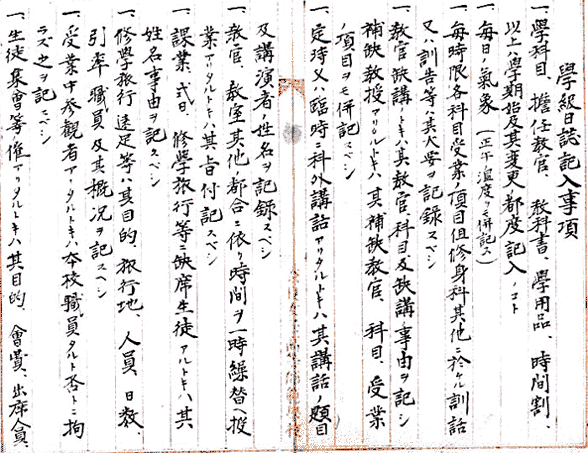 學級日誌記入事項
一、學科目、擔任教官、教科書、學用品、時間割、
以上ハ學期始及其変更ノ都度記入ノコト
一、毎日ノ氣象(正午ノ温度ヲモ併記ス)
一、毎時限各科目受業ノ項目但修身科其他ニ於ケル訓話
又ハ訓告等ハ其大要ヲ記録スベシ
一、教官缺講ノトキハ其教官、科目、及缺講ノ事由ヲ記シ
補缺教授アリタルトキハ其補缺教官、科目、受業
ノ項目ヲモ併記スベシ
一、定時又ハ臨時ニ科外講話アリタルトキハ其講話ノ題目
及講演者ノ姓名ヲ記録スベシ
一、教官、教室其他ノ都合ニ依リ時間ヲ一時繰替ヘ授
業アリタルトキハ其旨付記スベシ
一、課業、式日、修學旅行等ニ缺席生徒アルトキハ其
姓名事由ヲ記スベシ
一、修學旅行遠足等ハ其目的、旅行地、人員、日数、
引率職員及其概況ヲ記スベシ
一、受業中参觀者アリタルトキハ本校職員タルト否トニ拘
ラズ之ヲ記スベシ
一、生徒集會等催アリタルトキハ其目的、會費、出席人員、